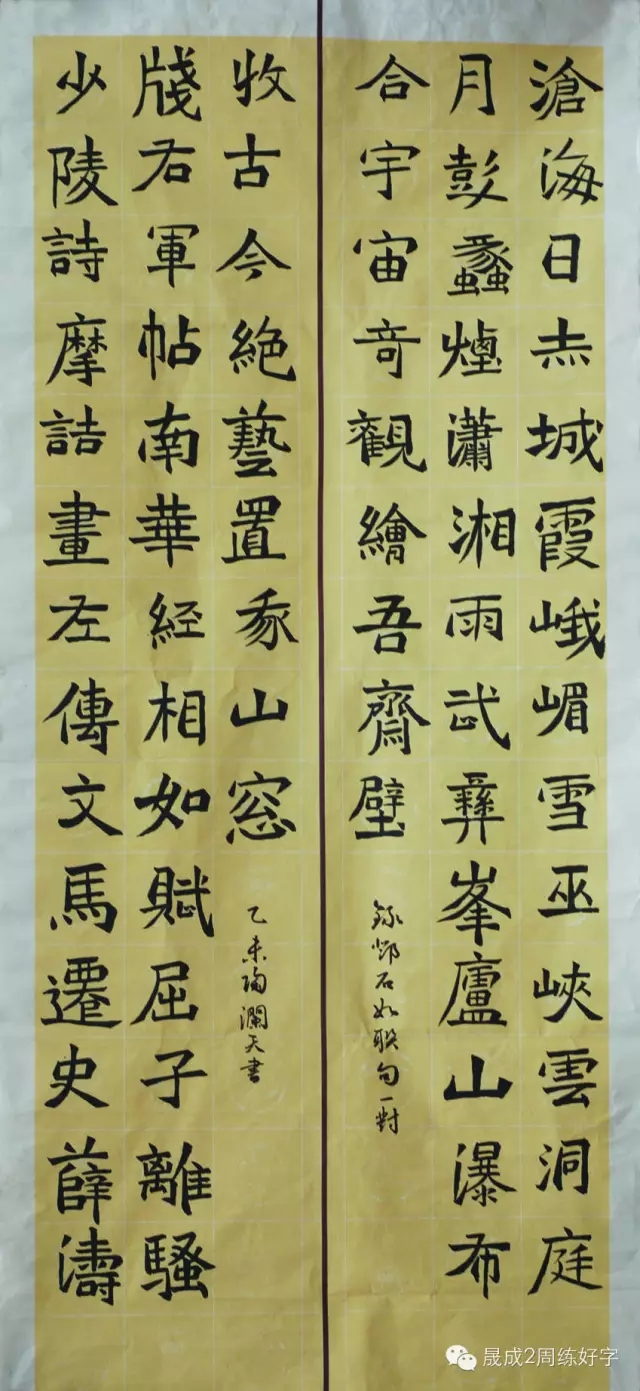 滄海日赤城霞峨嵋雪巫峽雲洞庭
月彭蠡煙瀟湘雨武彝峯廬山瀑布
合宇宙奇觀繪吾齋壁
錄鄧石如联句一對
少陵詩摩詰畫左傳文馬遷史薛濤
牋右軍帖南華經相如賦屈子離騷
收古今絶藝置我山窓
乙未陶瀾天書
晟成2周练好字